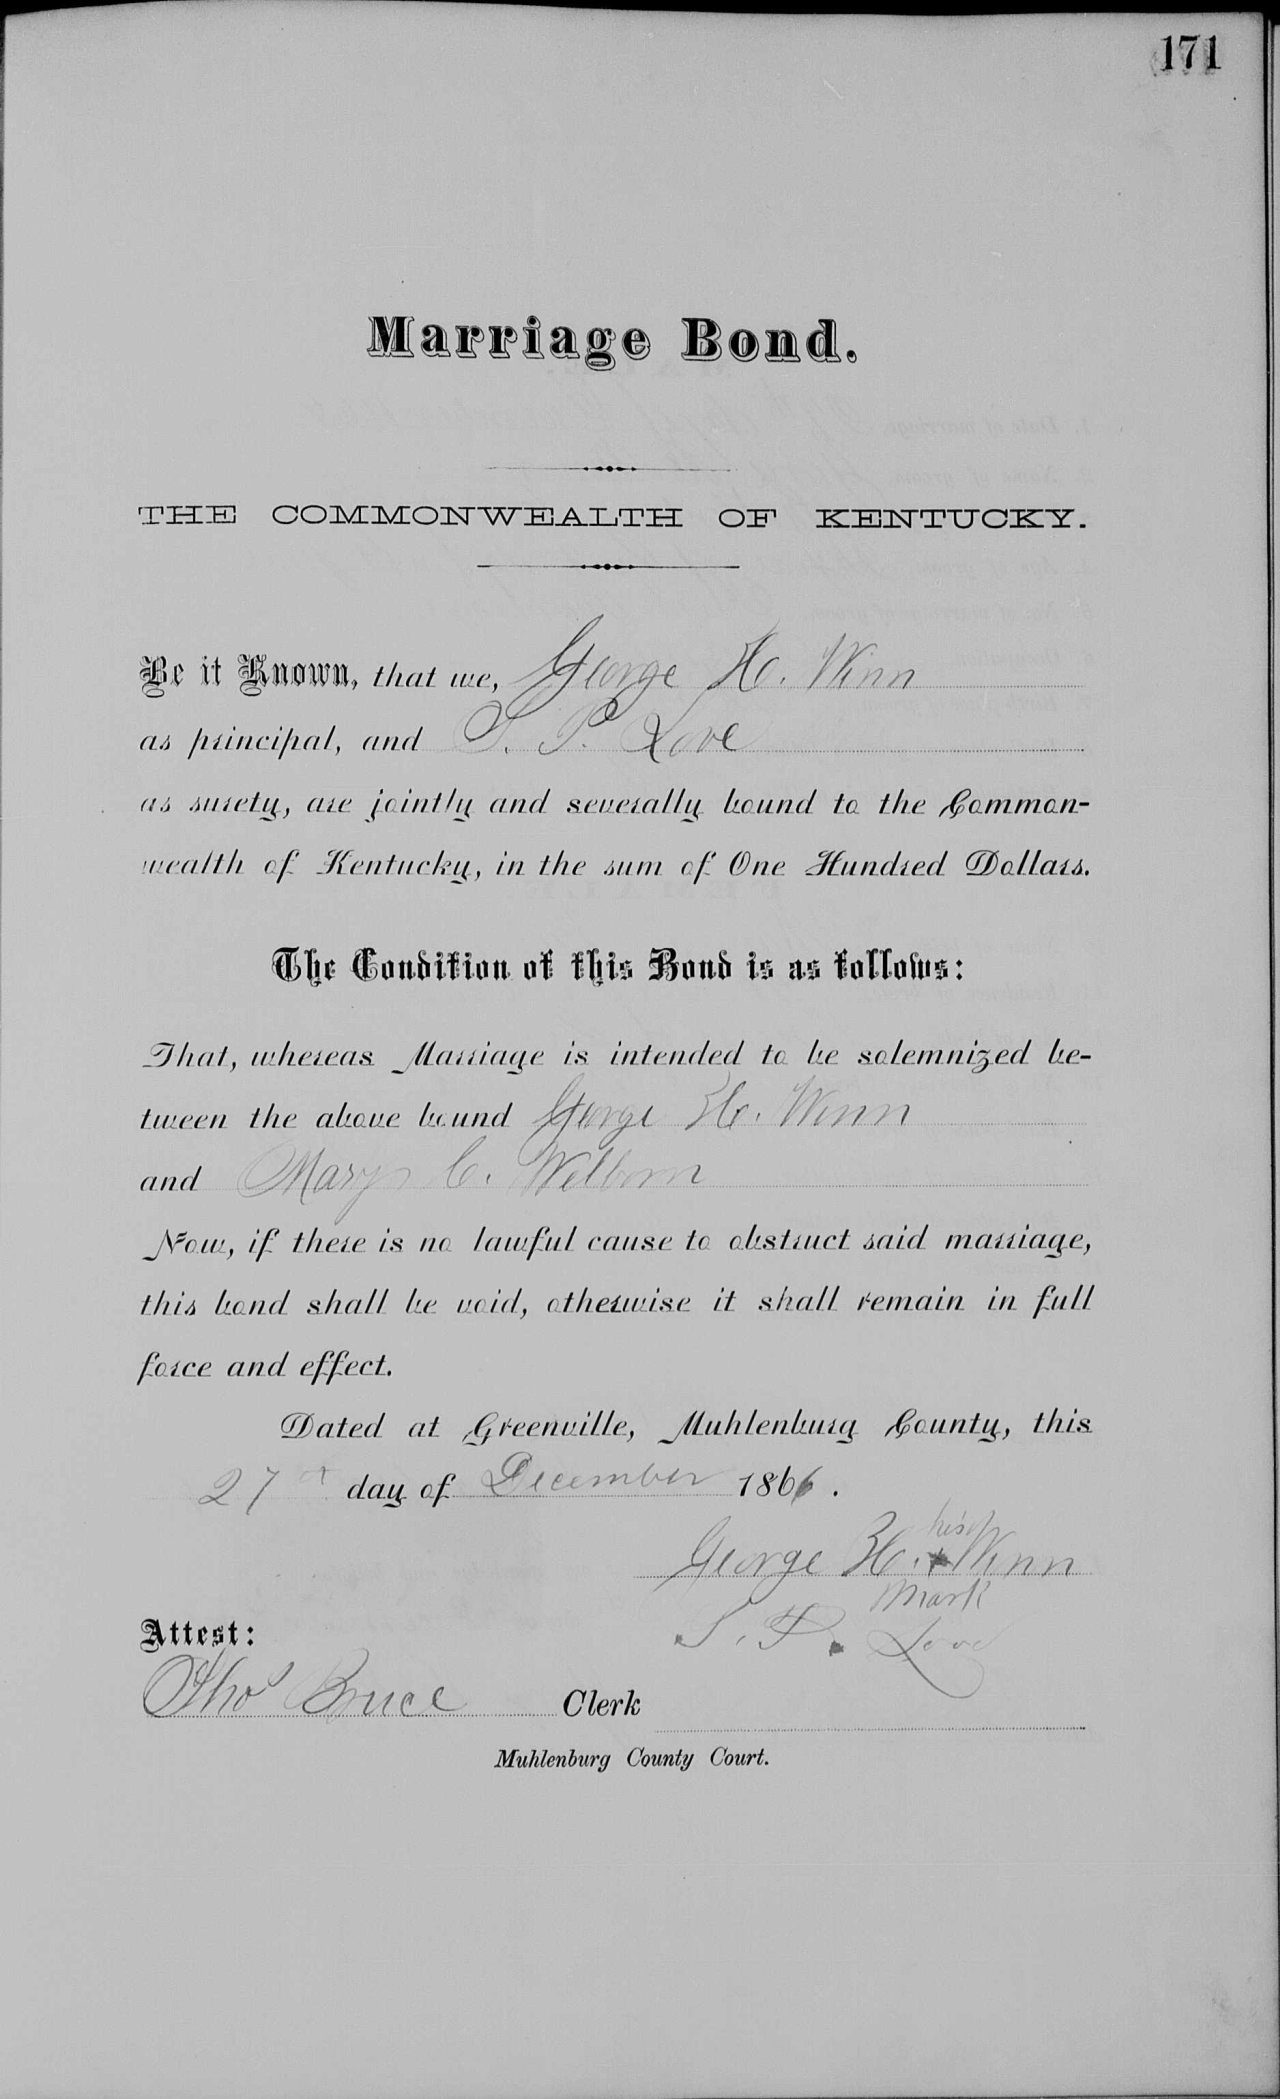 171
Marriage Bond.
THE COMMONWEALTH OF KENTUCKY.
Be it Known, that we, George H. Winn
as principal, and S. P. Love
as surety, are jointly and severally bound to the Common-
wealth of Kentucky, in the sum of One Hundred Dollars.
The Condition of this Bond is as follows:
That, whereas Marriage is intended to be solemnized be-
tween the above bound George H. Winn
and Mary C. Welborn
Now, if there is no lawful cause to obstruct said marriage,
this bond shall be void, otherwise it shall remain in full
force and effect.
Dated at Greenville, Muhlenburg County, this
27 day of December 1866.
his
George H. + Winn
mark
Attest:
S. P. Love
Thos Bruce Clerk
Muhlenburg County Court.